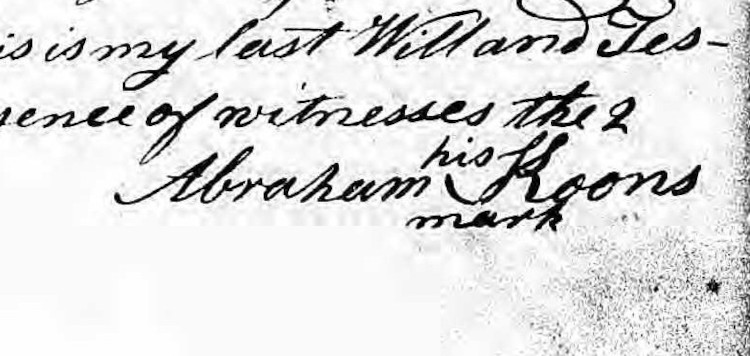 is is my last Will and Tes-
sence of witnesses the 2
his
Abraham Koons
mark